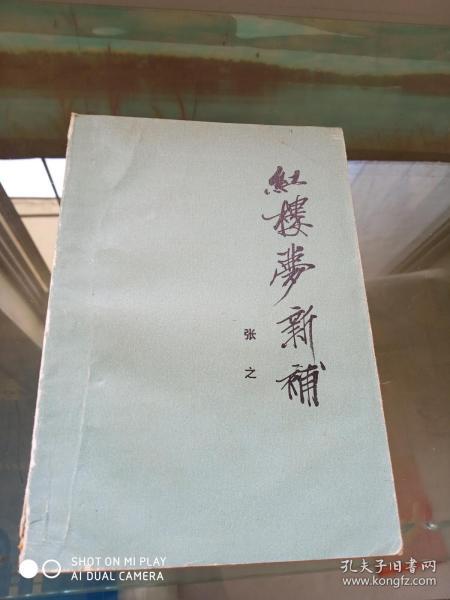 紅樓夢新補
张之
SHOT ON MI PLAY
AI DUAL CAMERA
孔夫子旧书网
www.kongfz.com